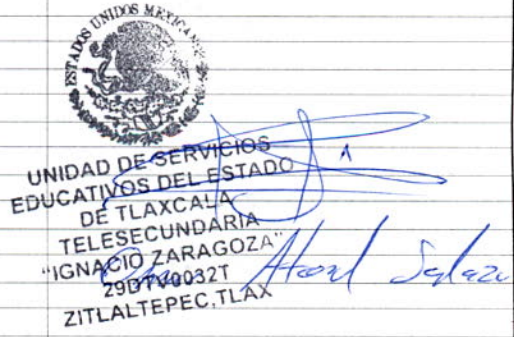 ESTADOS UNIDOS MEXICANOS
UNIDAD DE SERVICIOS
EDUCATIVOS DEL ESTADO
DE TLAXCALA
TELESECUNDARIA
"IGNACIO ZARAGOZA"
29DTV0032T
ZITLALTEPEC,TLAX